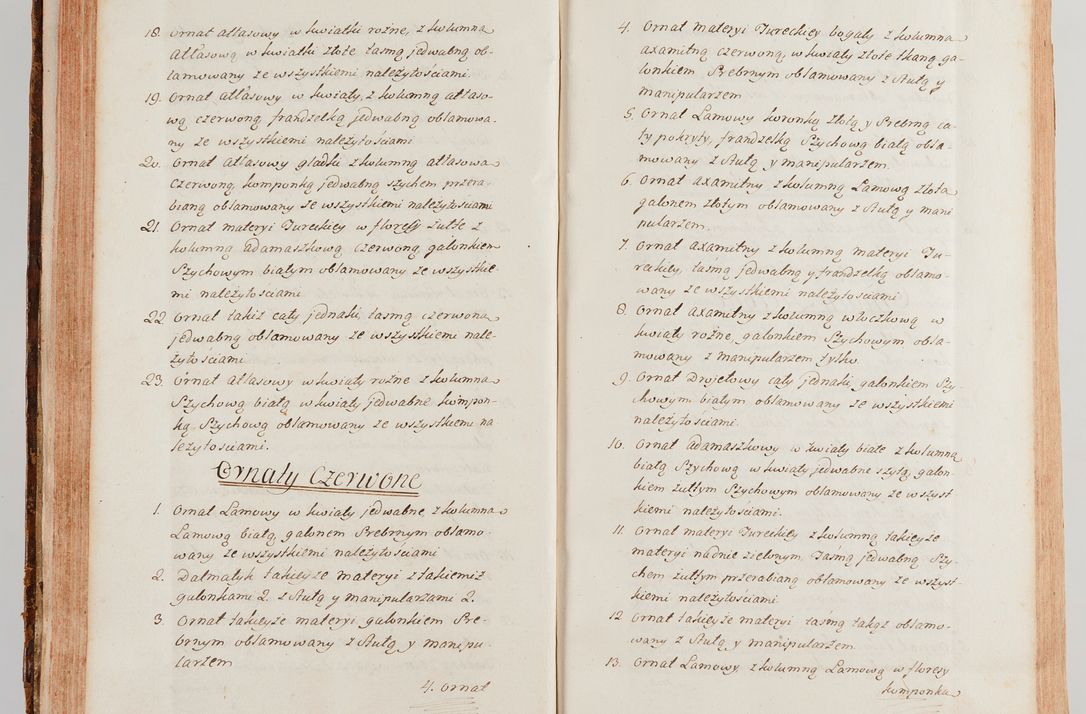 18. Ornat atłasowy w kwiatki rożne, z kolumną
atłasową w kwiatki złote tasmą jedwabną ob-
lamowany ze wszystkiemi należytościami.
19. Ornat atłasowy w kwiaty, z kolumną atłaso-
wą czerwoną, frandzelką jedwabną oblamowa-
ny ze wszystkiemi należytościami
20. Ornat atłasowy gładki z kolumną atłasową
czerwoną, komponką jedwabną szychem przera-
bianą oblamowany ze wszystkiemi należytościami
21. Ornat materyi Tureckiey w floresy żułte z
kolumną adamaszkową czerwoną, galonkiem
Szychowym białym oblamowany ze wszystkie-
mi należytościami
22. Ornat takiż cały jednaki, tasmą czerwoną
jedwabną oblamowany ze wszystkiemi nale-
żytościami
23. Ornat atłasowy w kwiaty rożne z kolumną
Szychową białą w kwiaty jedwabne kompon-
ką Szychową oblamowany ze wszystkiemi na
leżytościami.
Ornaty Czerwone
1. Ornat Lamowy w kwiaty jedwabne, z kolumną
Lamową białą, galonem Srebrnym oblamo-
wany ze wszystkiemi należytościami
2. Dalmatyk takieyże materyi z takiemiż
galonkami 2. z Stułą y manipularzami 2.
3. Ornat takieyże materyi galonkiem Sre-
brnym oblamowany z Stułą y manipu-
larzem
4. Ornat
4. Ornat materyi Tureckiey bogaty z kolumną
axamitną czerwoną, w kwiaty złote tkaną ga-
lonkiem Srebrnym oblamowany z Stułą y
manipularzem
5. Ornat Lamowy koronką złotą y Srebrną ca-
ły pokryty, frandzelką Szychową białą obla-
mowany z Stułą y manipularzem.
6. Ornat axamitny z kolumną Lamową złotą
galonem złotym oblamowany z Stułą y mani
pularzem.
7. Ornat axamitny z kolumną materyi Tu-
reckiey, tasmą jedwabną y frandzelką oblamo-
wany ze wszystkiemi należytościami
8. Ornat axamitny z kolumną włoczkową w
kwiaty rożne, galonkiem Szychowym obla-
mowany z manipularzem tylko.
9. Ornat Drojetowy cały jednaki, galonkiem Szy-
chowym białym oblamowany ze wszystkiemi
należytościami.
10. Ornat adamaszkowy w kwiaty białe z kolumną
białą Szychową w kwiaty jedwabne szytą, galon-
kiem żułtym Szychowym oblamowany ze wszyst-
kiemi należytościami.
11. Ornat materyi Tureckiey z kolumną takieyże
materyi na dnie zielonym Tasmą jedwabną Szy-
chem żułtym przerabianą oblamowany ze wszyst-
kiemi należytościami
12 Ornat takieyże materyi tasmą takąż oblamo-
wany z Stułą y manipularzem
13. Ornat Lamowy, z kolumną Lamową w floresy
komponką